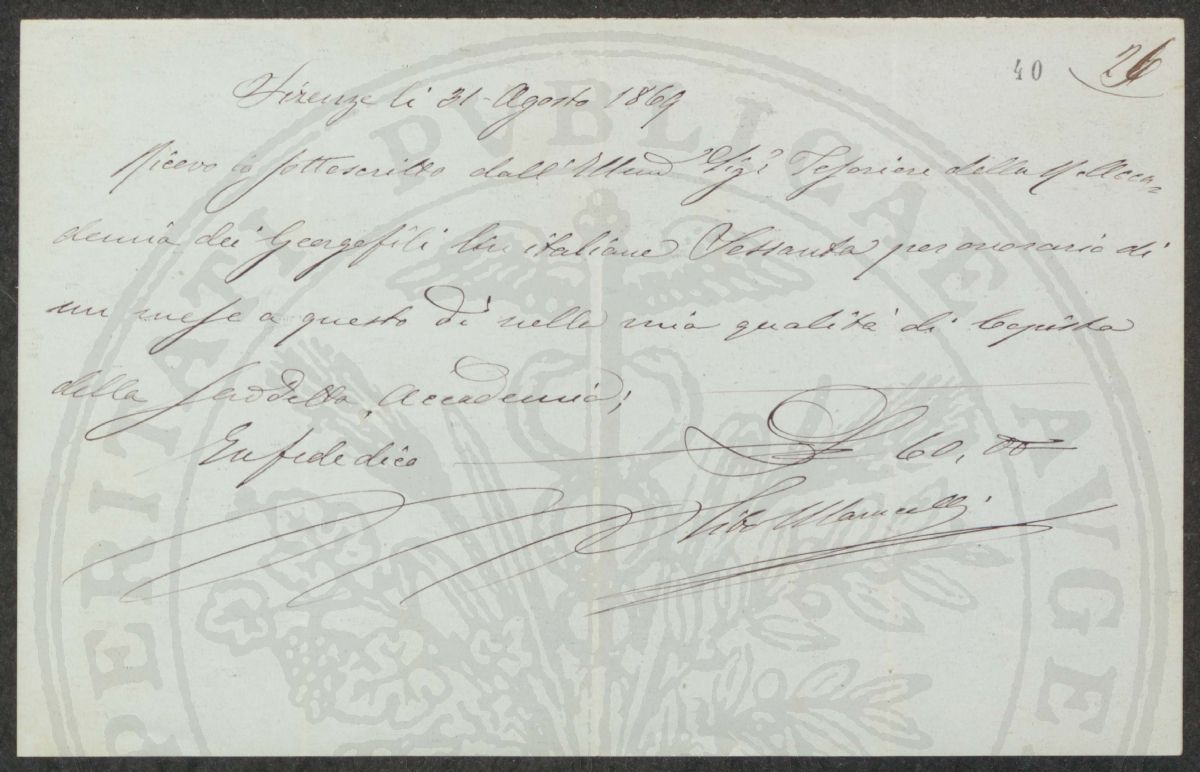 40 26
Firenze li 31 Agosto 1869
Ricevo io sottoscritto dall' Illmo Sigr Tesoriere della R. Acca-
demia dei Georgofili Lire italiane Sessanta per onorario di
un mese a questo dì nella mia qualità di Copista
della suddetta Accademia;
In fede dico L 60,00
Marucelli
PROSPERITATI PVBLICAE AVGENDAE